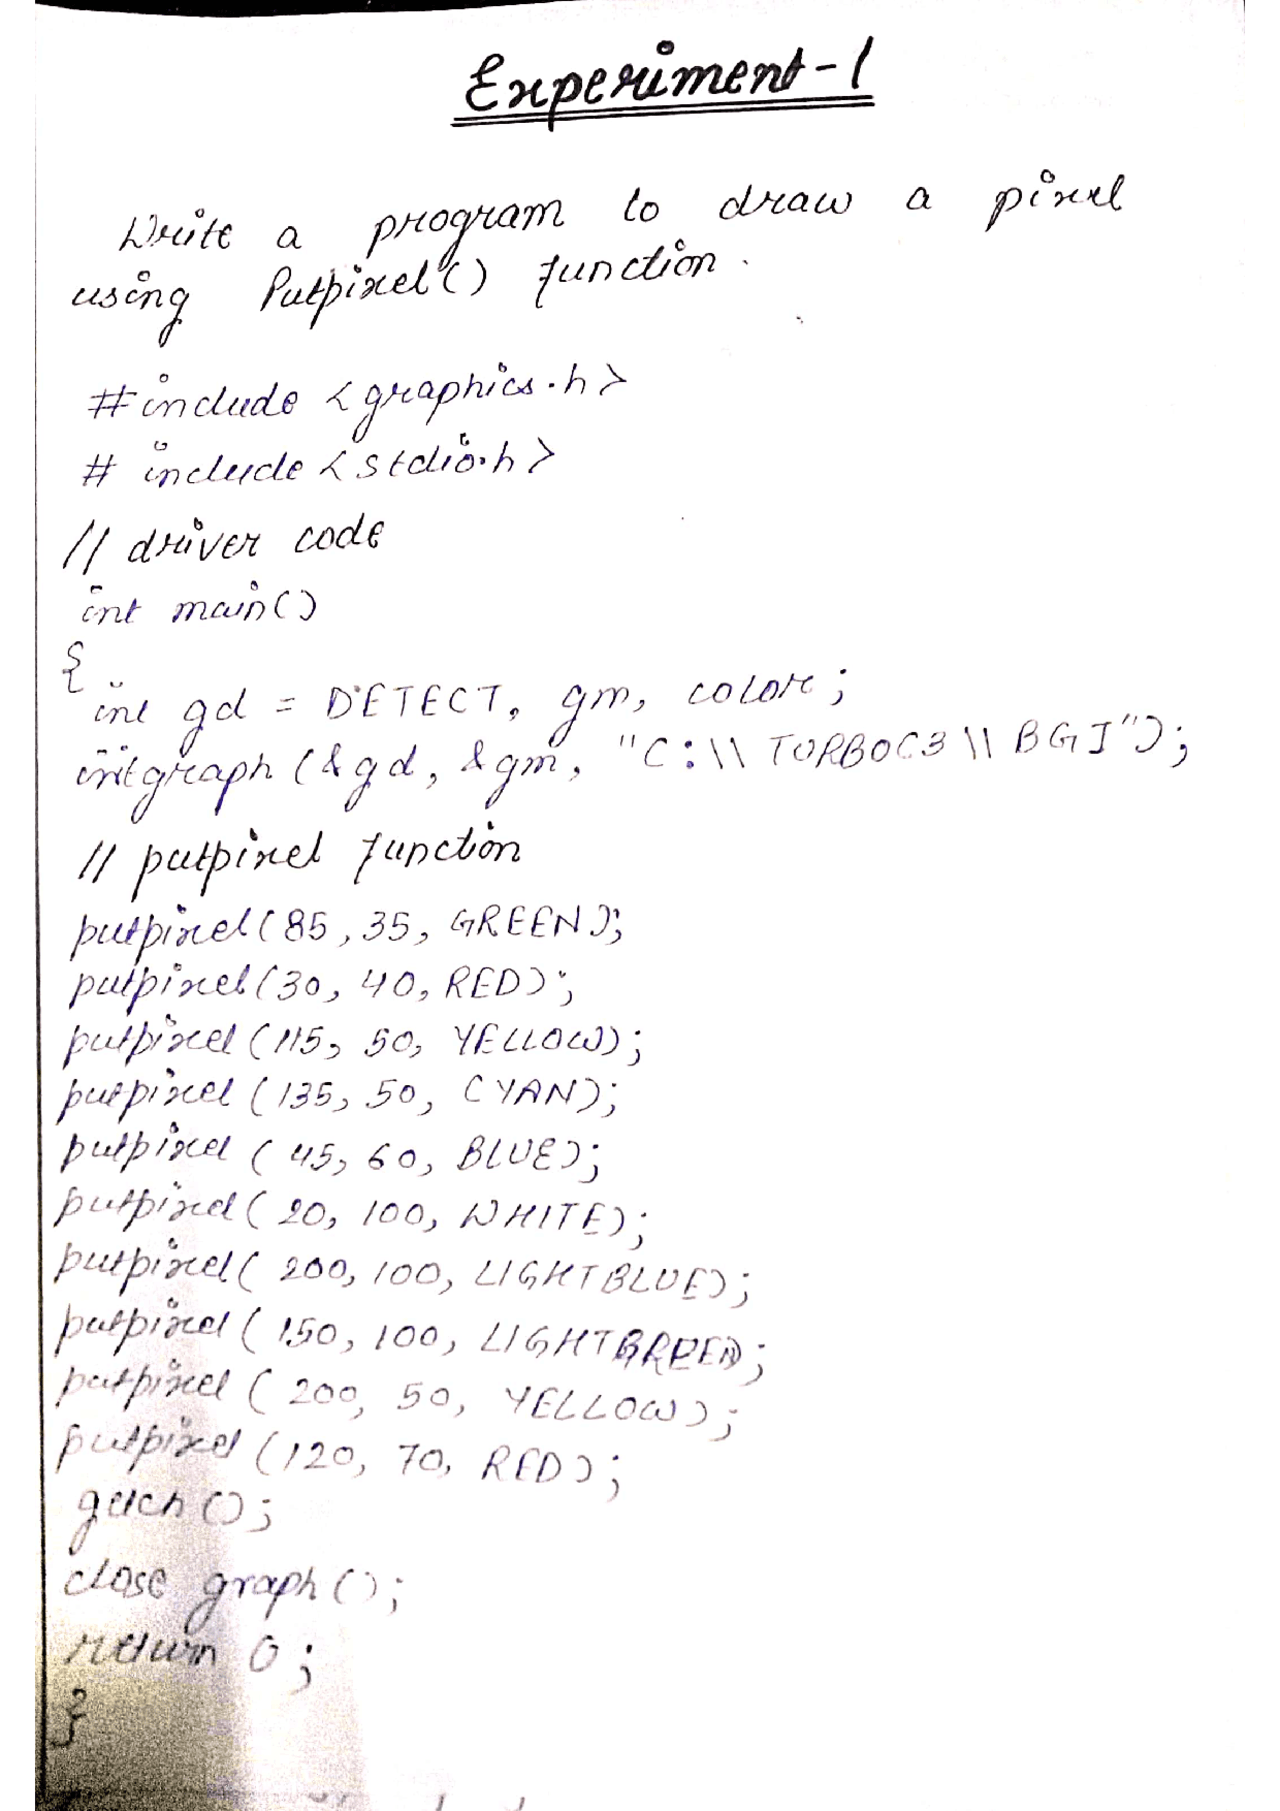 Experiment-1
Write a program to draw a pixel
using Putpixel() function.
#include <graphics.h>
# include <stdio.h>
// driver code
int main()
{
int gd = DETECT, gm, color;
initgraph (&gd, &gm, "C:\\ TURBOC3 \\ BGI");
// putpixel function
putpixel(85, 35, GREEN);
putpixel(30, 40, RED);
putpixel (115, 50, YELLOW);
putpixel (135, 50, CYAN);
putpixel ( 45, 60, BLUE);
putpixel ( 20, 100, WHITE);
putpixel ( 200, 100, LIGHTBLUE);
putpixel ( 150, 100,
putpixel ( 200, 50, YELLOW);
putpixel (120, 70, RED);
getch ();
close graph ();
return 0;
}